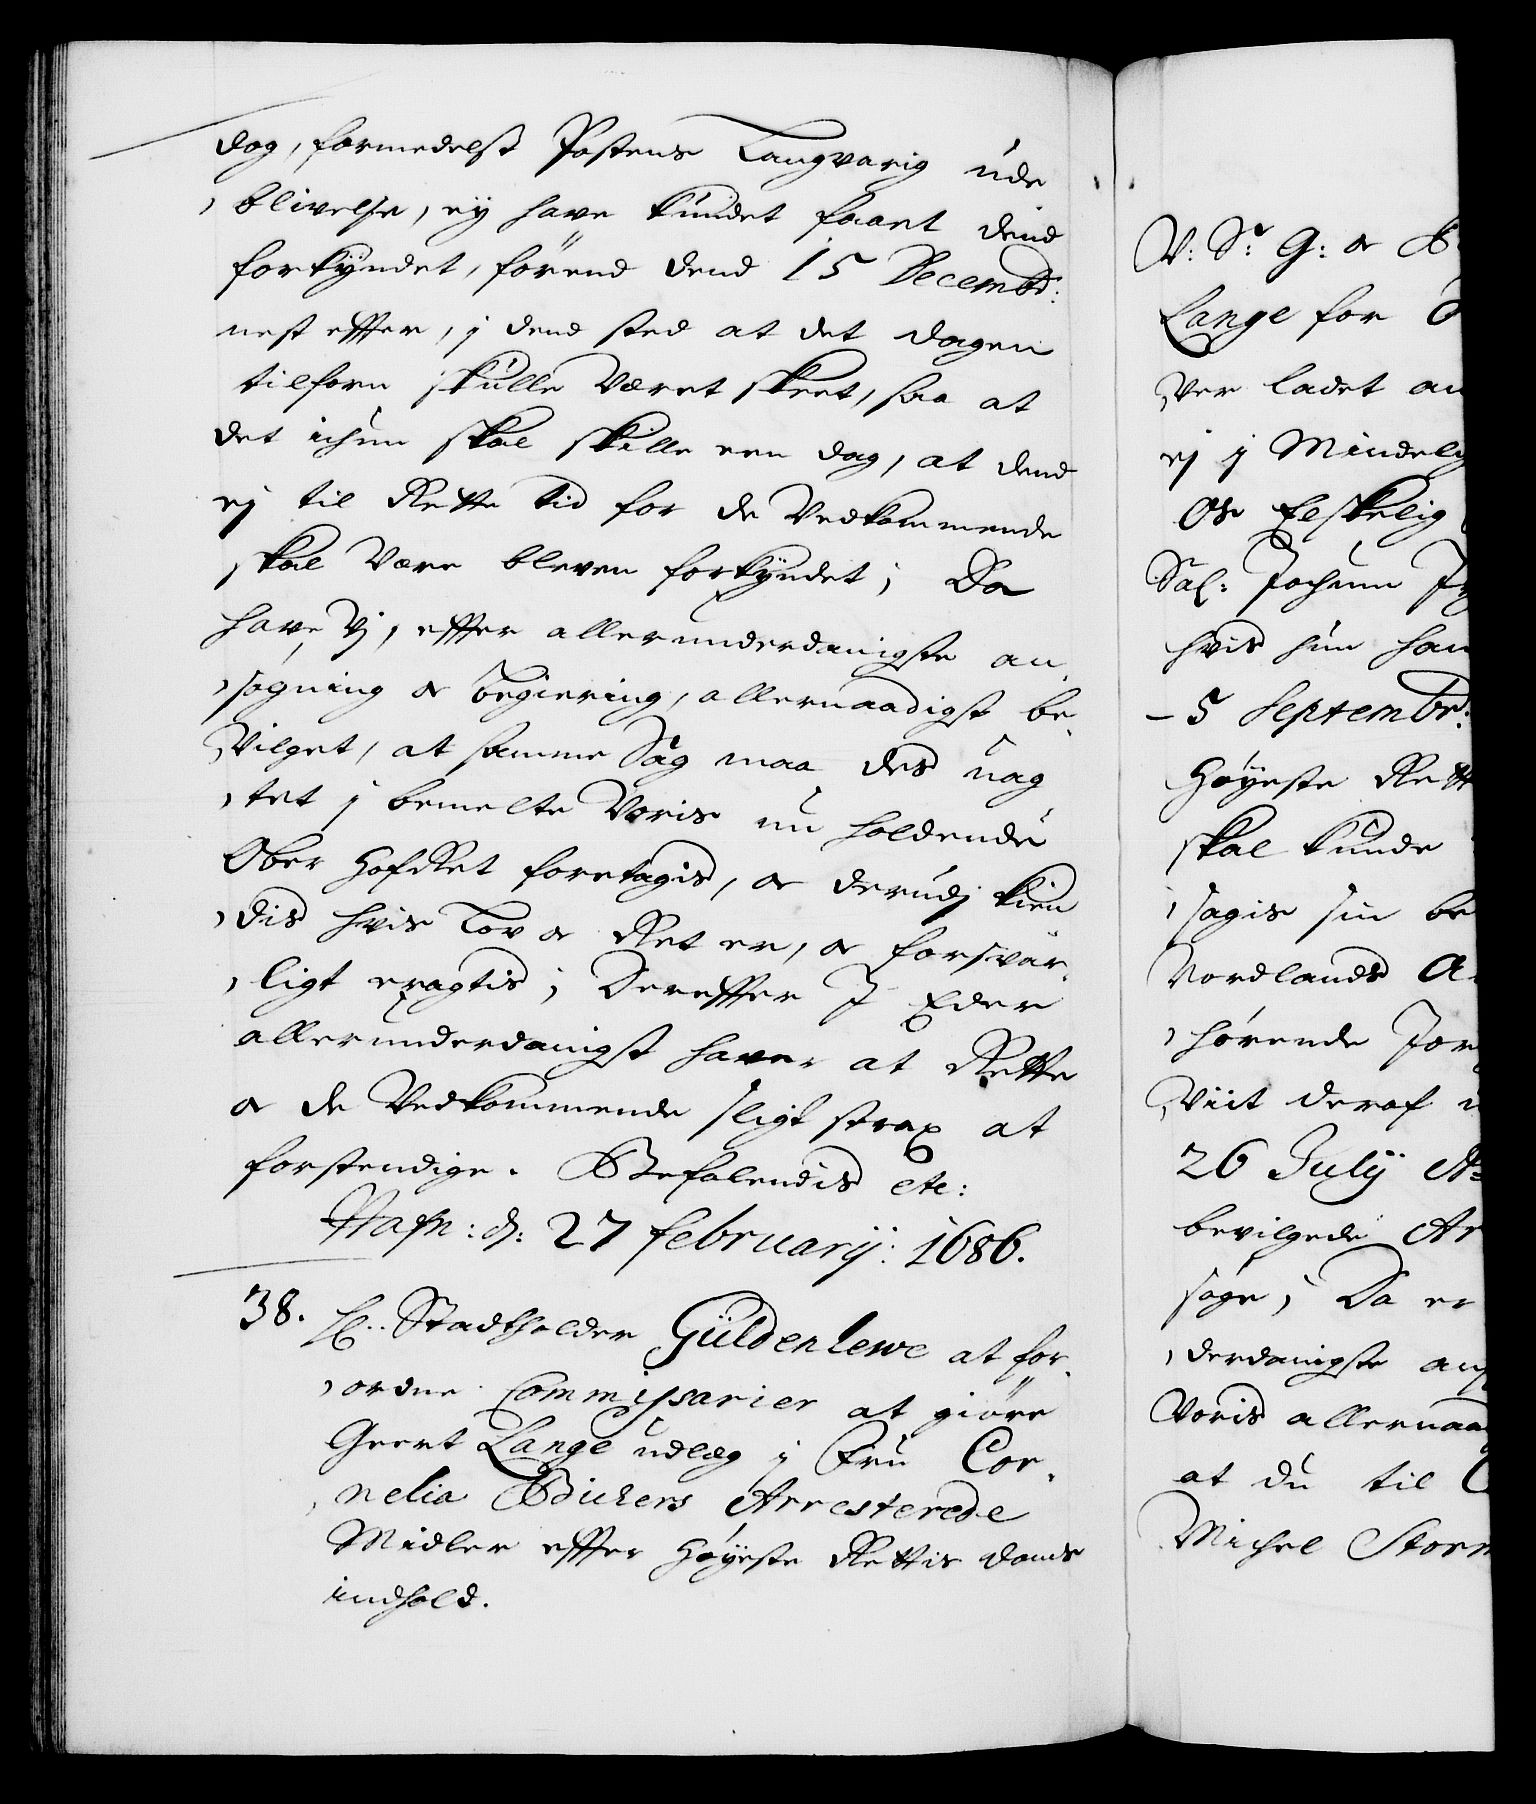 dog, formedelst Postens Langvarig ude
blivelse, ey have kundet faaet dend
forkyndet, förend dend 15 Decembr:
nest effter, j dend sted at det dagen
tilforn skulle Veret skeet, saa at
det ichun skal skille een dag, at dend
ej til Rette tid for de Vedkommende
skal Vere bleven forkyndet; Da
have Vj, effter allerunderdanigste an,
søgning oc begiering, allernaadigst be,
Vilget, at samme Sag maa des uag
,tet j bemelte Voris nu holdende
Ober Hofret foretagis, oc derudj kien
,dis hvis Lov oc Ret er, oc forsvar,
,ligt eragtis; Dereffter I Eder
allerunderdanigst haver at Rette
oc de Vedkommende sligt strax at
forstendige. Befalendis etc:
Hafn: d: 27 februarij: 1686.
38. H.. Stadtholder Güldenlewe at for,
,ordne Commissarier at giöre
Geert Lange udleg j Fru Cor,
,nelia Bickers Arresterede
Midler effter Høyeste Rettis doms
indhold.
V: Sr: G: oc
Lange for
Ver ladet an
ej j Mindelig
Os Elskelig
Sal: Jochum
hvis hun han
5 Septembr:
Høyeste Rett
skal kunde
søgis sin be
Nordlands A
,hørende Jor
Viit deraf
26 Julij A
bevilgede Ar
søge; Da er
,derdanigste an
Voris allernaa
at du til
Michel Storm